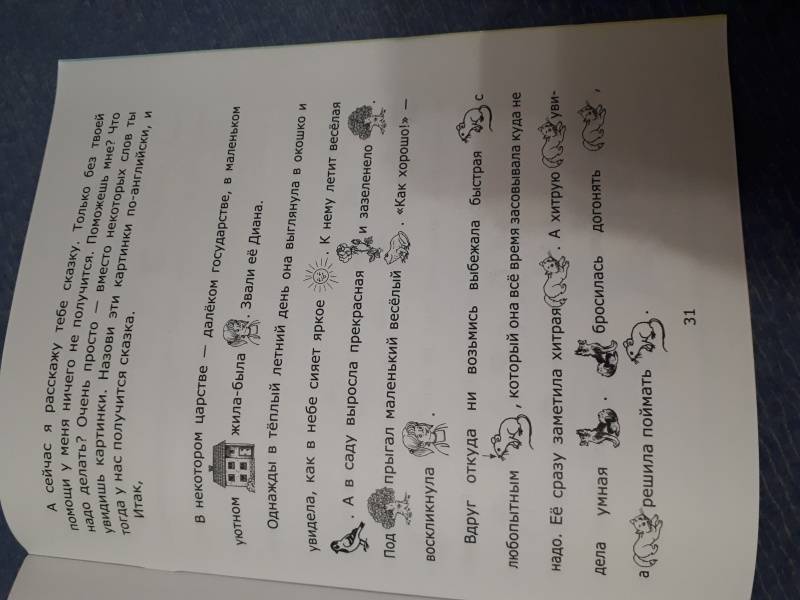 А сейчас я расскажу тебе сказку. Только без твоей
помощи у меня ничего не получится. Поможешь мне? Что
надо делать? Очень просто — вместо некоторых слов ты
увидишь картинки. Назови эти картинки по-английски, и
тогда у нас получится сказка.
Итак,
В некотором царстве — далёком государстве, в маленьком
уютном жила-была . Звали её Диана.
Однажды в тёплый летний день она выглянула в окошко и
увидела, как в небе сияет яркое . К нему летит весёлая
. А в саду выросла прекрасная и зазеленело .
Под прыгал маленький весёлый . «Как хорошо!» —
воскликнула .
Вдруг откуда ни возьмись выбежала быстрая с
любопытным , который она всё время засовывала куда не
надо. Её сразу заметила хитрая . А хитрую уви-
дела умная . бросилась догонять ,
а решила поймать .
31